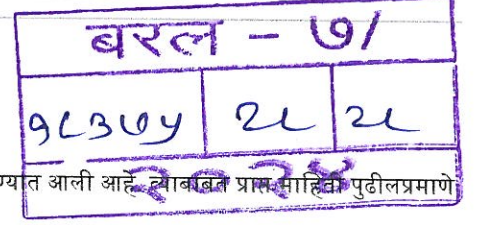 बरल - ७/
१८३७५ २८ २८
२०२४
ण्यात आली आहे. त्याबाबत प्राप्त माहिती पुढीलप्रमाणे